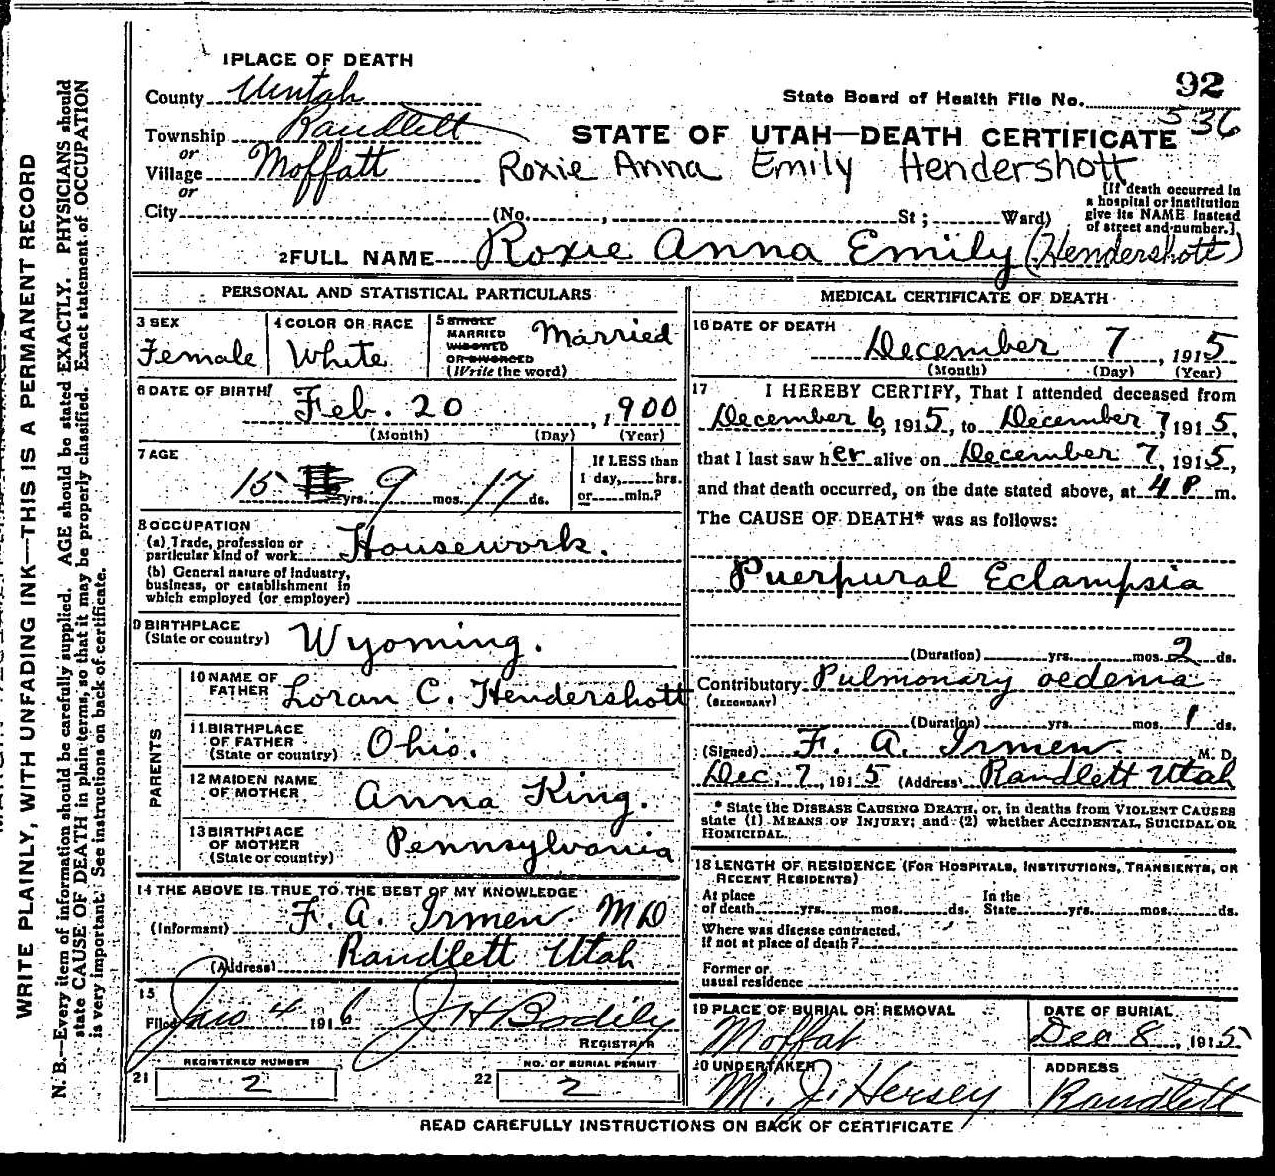 1 PLACE OF DEATH
92
County Uintah
State Board of Health File No. 536
Township Randlett
STATE OF UTAH—DEATH CERTIFICATE
or
Village Moffatt
Roxie Anna Emily Hendershott
or
City (No. , St ; Ward)
[If death occurred in
a hospital or institution
give its NAME instead
of street and number.]
2 FULL NAME Roxie Anna Emily (Hendershott)
PERSONAL AND STATISTICAL PARTICULARS
3 SEX
Female
4 COLOR OR RACE
White
5 SINGLE
MARRIED
WIDOWED
OR DIVORCED
(Write the word)
Married
6 DATE OF BIRTH
Feb. 20 , 1900
(Month) (Day) (Year)
7 AGE
15 yrs. 9 mos. 17 ds.
If LESS than
1 day, hrs.
or min.?
8 OCCUPATION
(a) Trade, profession or
particular kind of work Housework.
(b) General nature of industry,
business, or establishment in
which employed (or employer)
9 BIRTHPLACE
(State or country) Wyoming.
PARENTS
10 NAME OF
FATHER Loran C. Hendershott
11 BIRTHPLACE
OF FATHER
(State or country) Ohio.
12 MAIDEN NAME
OF MOTHER Anna King.
13 BIRTHPLACE
OF MOTHER
(State or country) Pennsylvania
14 THE ABOVE IS TRUE TO THE BEST OF MY KNOWLEDGE
(Informant) F. A. Irmen MD
(Address) Randlett Utah
15
Filed Jan 4 1916 J H Bodily
REGISTRAR
REGISTERED NUMBER
21 2
NO. OF BURIAL PERMIT
22 2
MEDICAL CERTIFICATE OF DEATH
16 DATE OF DEATH
December 7 , 1915
(Month) (Day) (Year)
17 I HEREBY CERTIFY, That I attended deceased from
December 6, 1915, to December 7, 1915,
that I last saw her alive on December 7, 1915,
and that death occurred, on the date stated above, at 4 P m.
The CAUSE OF DEATH* was as follows:
Puerpural Eclampsia
(Duration) yrs. mos. 2 ds.
Contributory Pulmonary oedema
(SECONDARY)
(Duration) yrs. mos. 1 ds.
(Signed) F. A. Irmen M. D.
Dec. 7, 1915 (Address) Randlett Utah
* State the DISEASE CAUSING DEATH, or, in deaths from VIOLENT CAUSES
state (1) MEANS OF INJURY; and (2) whether ACCIDENTAL, SUICIDAL OR
HOMICIDAL.
18 LENGTH OF RESIDENCE (FOR HOSPITALS, INSTITUTIONS, TRANSIENTS, OR
RECENT RESIDENTS)
At place In the
of death yrs. mos. ds. State yrs. mos. ds.
Where was disease contracted,
if not at place of death?
Former or
usual residence
19 PLACE OF BURIAL OR REMOVAL
Moffat
DATE OF BURIAL
Dec 8, 1915
20 UNDERTAKER
M. J. Hersey
ADDRESS
Randlett
READ CAREFULLY INSTRUCTIONS ON BACK OF CERTIFICATE
WRITE PLAINLY, WITH UNFADING INK—THIS IS A PERMANENT RECORD
N. B.—Every item of information should be carefully supplied. AGE should be stated EXACTLY. PHYSICIANS should
state CAUSE OF DEATH in plain terms, so that it may be properly classified. Exact statement of OCCUPATION
is very important. See instructions on back of certificate.